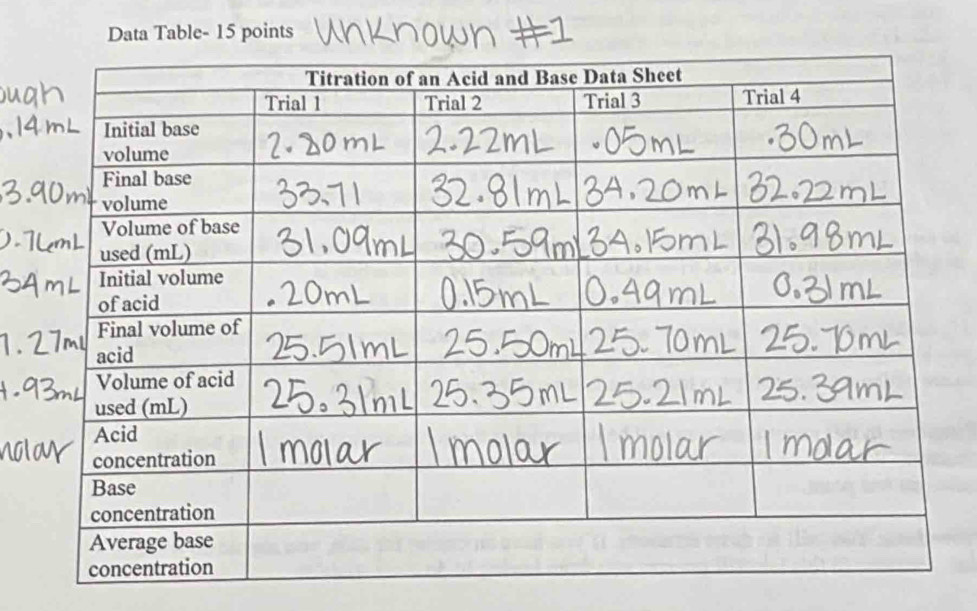 Data Table- 15 points Unknown #1
Titration of an Acid and Base Data Sheet
Trial 1 Trial 2 Trial 3 Trial 4
.14mL Initial base volume 2.80mL 2.22mL .05mL .30mL
3.90mL Final base volume 33.71 32.81mL 34.20mL 32.22mL
Volume of base used (mL) 31.09mL 30.59mL 34.15mL 31.98mL
34mL Initial volume of acid .20mL 0.15mL 0.49mL 0.31mL
.27mL Final volume of acid 25.51mL 25.50mL 25.70mL 25.70mL
.93mL Volume of acid used (mL) 25.31mL 25.35mL 25.21mL 25.39mL
molar Acid concentration 1 molar 1 molar 1 molar 1 molar
Base concentration
Average base concentration